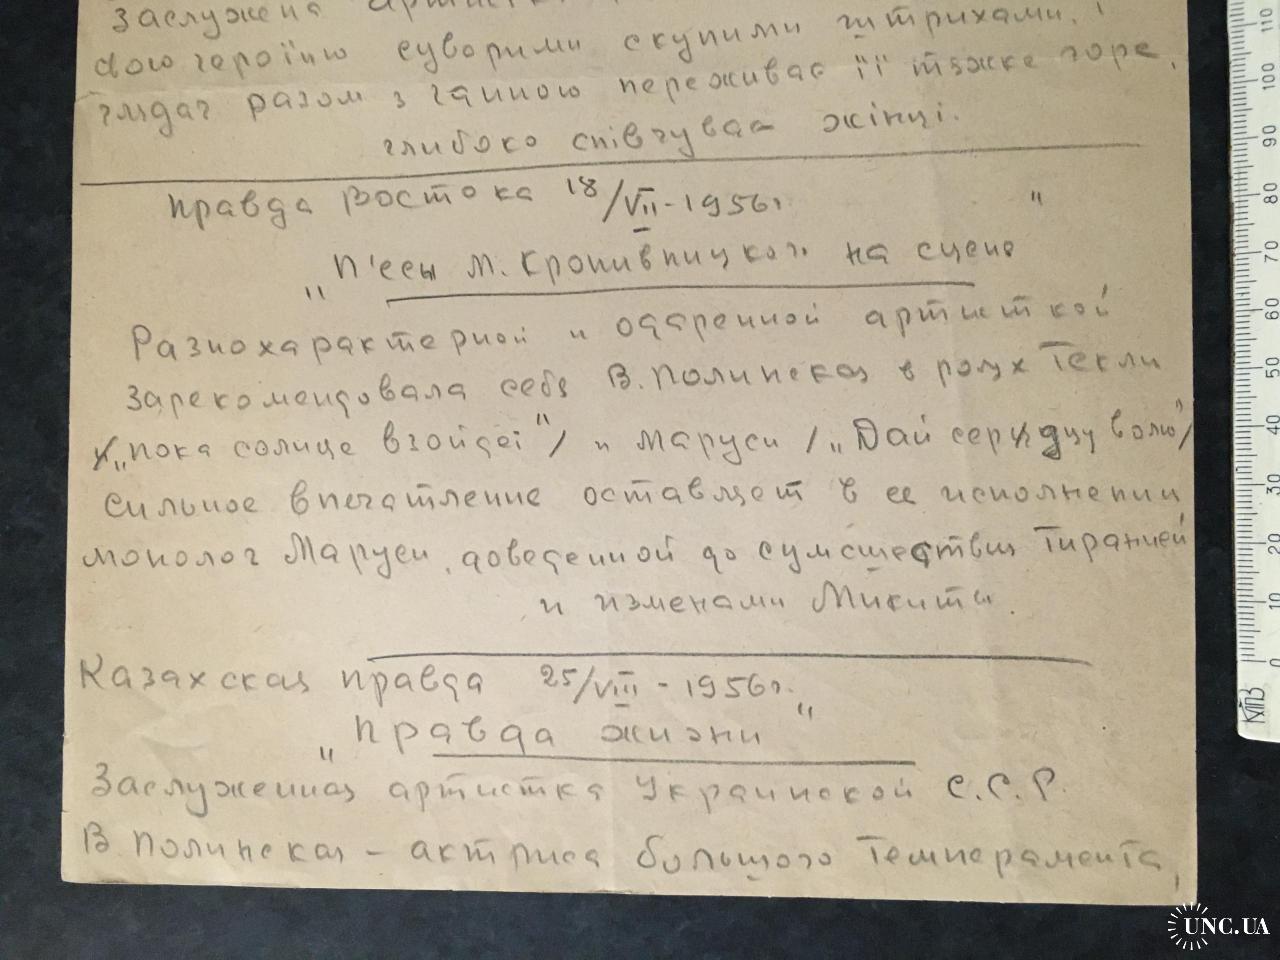 Заслужена
свою героїню суворими скупими штрихами,
глядач разом з Ганною переживає її тяжке горе,
глибоко співчуває жінці.
Правда Востока 18/VII - 1956г.
„П'есы М. Кропивницкого на сцене"
Разнохарактерной и одаренной артисткой
зарекомендовала себя В. Полинская в ролях Текли
/„Пока солнце взойдет"/ и Маруси /„Дай сердцу волю"/
Сильное впечатление оставляет в ее исполнении
монолог Маруси, доведенной до сумсшествия тиранией
и изменами Микиты.
Казахская правда 25/VIII - 1956г.
„Правда жизни"
Заслуженная артистка Украинской С.С.Р.
В Полинская - актриса большого темперамента,
110
100
90
80
70
60
50
40
30
20
10
0
КПЗ
UNC.UA